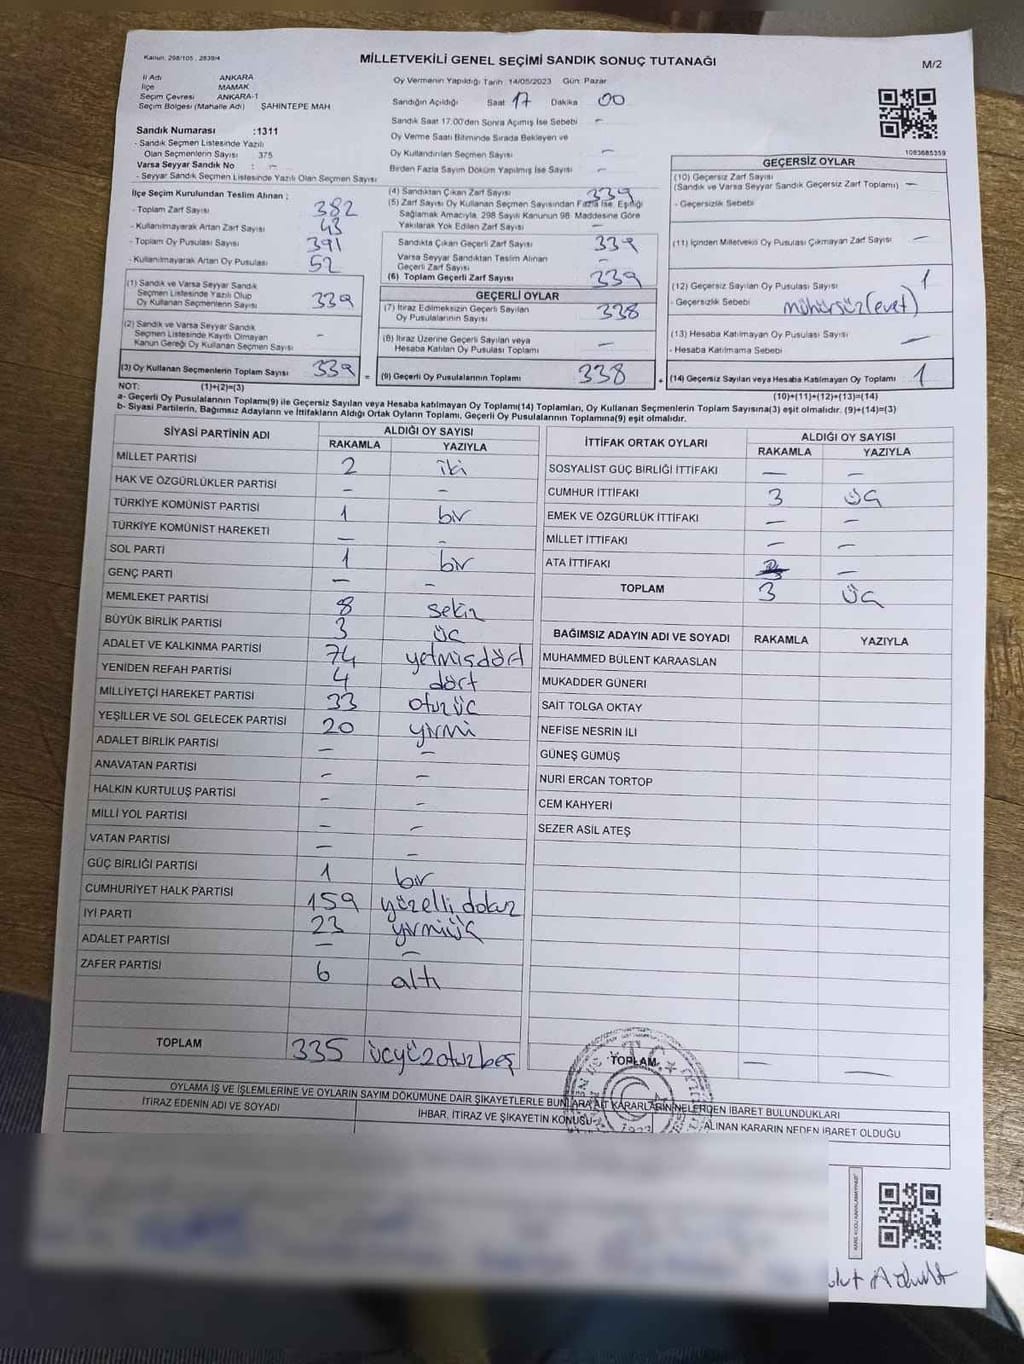 Kanun: 298/105 , 2839/4
MİLLETVEKİLİ GENEL SEÇİMİ SANDIK SONUÇ TUTANAĞI
M/2
İl Adı ANKARA
İlçe MAMAK
Seçim Çevresi ANKARA-1
Seçim Bölgesi (Mahalle Adı) ŞAHINTEPE MAH
Sandık Numarası :1311
- Sandık Seçmen Listesinde Yazılı
Olan Seçmenlerin Sayısı : 375
Varsa Seyyar Sandık No : -
- Seyyar Sandık Seçmen Listesinde Yazılı Olan Seçmen Sayısı
İlçe Seçim Kurulundan Teslim Alınan ;
- Toplam Zarf Sayısı 382
- Kullanılmayarak Artan Zarf Sayısı 43
- Toplam Oy Pusulası Sayısı 391
- Kullanılmayarak Artan Oy Pusulası 52
(1) Sandık ve Varsa Seyyar Sandık
Seçmen Listesinde Yazılı Olup
Oy Kullanan Seçmenlerin Sayısı 339
(2) Sandık ve Varsa Seyyar Sandık
Seçmen Listesinde Kayıtlı Olmayan
Kanun Gereği Oy Kullanan Seçmen Sayısı -
(3) Oy Kullanan Seçmenlerin Toplam Sayısı 339
Oy Vermenin Yapıldığı Tarih :14/05/2023 Gün :Pazar
Sandığın Açıldığı Saat 17 Dakika 00
Sandık Saat 17:00'den Sonra Açılmış İse Sebebi -
Oy Verme Saati Bitiminde Sırada Bekleyen ve
Oy Kullandırılan Seçmen Sayısı -
Birden Fazla Sayım Döküm Yapılmış İse Sayısı -
(4) Sandıktan Çıkan Zarf Sayısı 339
(5) Zarf Sayısı Oy Kullanan Seçmen Sayısından Fazla İse, Eşitliği
Sağlamak Amacıyla, 298 Sayılı Kanunun 98. Maddesine Göre
Yakılarak Yok Edilen Zarf Sayısı -
Sandıkta Çıkan Geçerli Zarf Sayısı 339
Varsa Seyyar Sandıktan Teslim Alınan
Geçerli Zarf Sayısı -
(6) Toplam Geçerli Zarf Sayısı 339
GEÇERLİ OYLAR
(7) İtiraz Edilmeksizin Geçerli Sayılan
Oy Pusulalarının Sayısı 338
(8) İtiraz Üzerine Geçerli Sayılan veya
Hesaba Katılan Oy Pusulası Toplamı -
= (9) Geçerli Oy Pusulalarının Toplamı 338
1083685359
GEÇERSİZ OYLAR
(10) Geçersiz Zarf Sayısı
(Sandık ve Varsa Seyyar Sandık Geçersiz Zarf Toplamı) -
- Geçersizlik Sebebi
(11) İçinden Milletvekili Oy Pusulası Çıkmayan Zarf Sayısı -
(12) Geçersiz Sayılan Oy Pusulası Sayısı 1
- Geçersizlik Sebebi mühürsüz(evet)
(13) Hesaba Katılmayan Oy Pusulası Sayısı -
- Hesaba Katılmama Sebebi
+ (14) Geçersiz Sayılan veya Hesaba Katılmayan Oy Toplamı 1
NOT: (1)+(2)=(3)
(10)+(11)+(12)+(13)=(14)
a- Geçerli Oy Pusulalarının Toplamı(9) ile Geçersiz Sayılan veya Hesaba katılmayan Oy Toplamı(14) Toplamları, Oy Kullanan Seçmenlerin Toplam Sayısına(3) eşit olmalıdır. (9)+(14)=(3)
b- Siyasi Partilerin, Bağımsız Adayların ve İttifakların Aldığı Ortak Oyların Toplamı, Geçerli Oy Pusulalarının Toplamına(9) eşit olmalıdır.
SİYASİ PARTİNİN ADI ALDIĞI OY SAYISI
RAKAMLA YAZIYLA
MİLLET PARTİSİ 2 iki
HAK VE ÖZGÜRLÜKLER PARTİSİ - -
TÜRKİYE KOMÜNİST PARTİSİ 1 bir
TÜRKİYE KOMÜNİST HAREKETİ - -
SOL PARTİ 1 bir
GENÇ PARTİ - -
MEMLEKET PARTİSİ 8 sekiz
BÜYÜK BİRLİK PARTİSİ 3 üç
ADALET VE KALKINMA PARTİSİ 74 yetmişdört
YENİDEN REFAH PARTİSİ 4 dört
MİLLİYETÇİ HAREKET PARTİSİ 33 otuzüç
YEŞİLLER VE SOL GELECEK PARTİSİ 20 yirmi
ADALET BİRLİK PARTİSİ - -
ANAVATAN PARTİSİ - -
HALKIN KURTULUŞ PARTİSİ - -
MİLLİ YOL PARTİSİ - -
VATAN PARTİSİ - -
GÜÇ BİRLİĞİ PARTİSİ 1 bir
CUMHURİYET HALK PARTİSİ 159 yüzelli dokuz
İYİ PARTİ 23 yirmiüç
ADALET PARTİSİ - -
ZAFER PARTİSİ 6 altı
TOPLAM 335 üçyüzotuzbeş
İTTİFAK ORTAK OYLARI ALDIĞI OY SAYISI
RAKAMLA YAZIYLA
SOSYALİST GÜÇ BİRLİĞİ İTTİFAKI - -
CUMHUR İTTİFAKI 3 üç
EMEK VE ÖZGÜRLÜK İTTİFAKI - -
MİLLET İTTİFAKI - -
ATA İTTİFAKI -
TOPLAM 3 üç
BAĞIMSIZ ADAYIN ADI VE SOYADI RAKAMLA YAZIYLA
MUHAMMED BÜLENT KARAASLAN
MUKADDER GÜNERİ
SAİT TOLGA OKTAY
NEFİSE NESRİN İLİ
GÜNEŞ GÜMÜŞ
NURİ ERCAN TORTOP
CEM KAHYERİ
SEZER ASİL ATEŞ
TOPLAM - -
OYLAMA İŞ VE İŞLEMLERİNE VE OYLARIN SAYIM DÖKÜMÜNE DAİR ŞİKAYETLERLE BUNLARA AİT KARARLARIN NELERDEN İBARET BULUNDUKLARI
İTİRAZ EDENİN ADI VE SOYADI İHBAR, İTİRAZ VE ŞİKAYETİN KONUSU ALINAN KARARIN NEDEN İBARET OLDUĞU